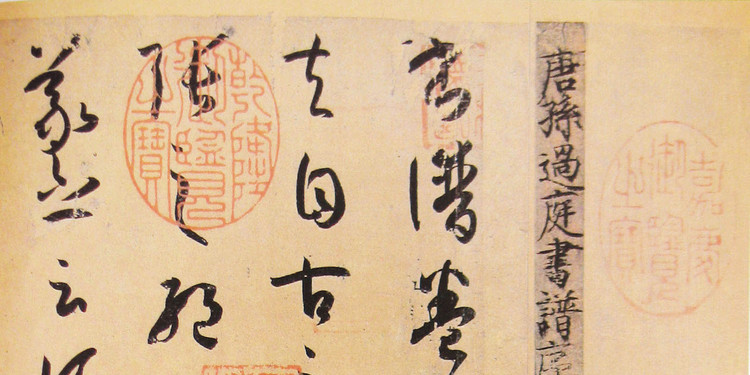 嘉慶御覽之寶
唐孫過庭書譜序
書譜卷
夫自古之
張之絕
乾隆御覽之寶
羲之云